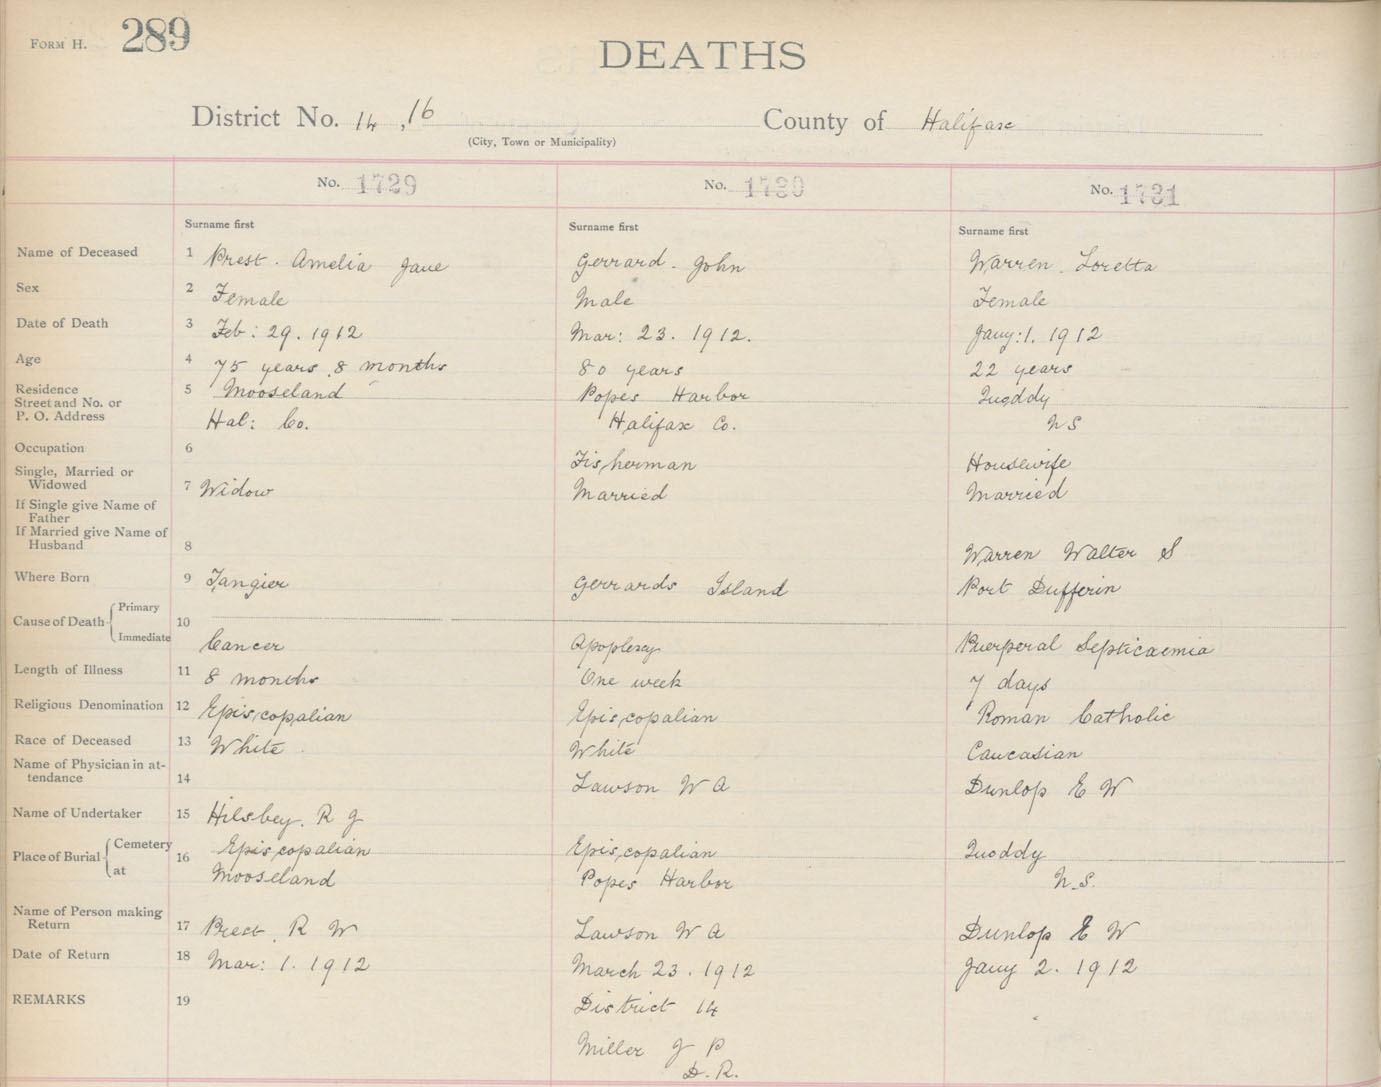 FORM H. 289
DEATHS
District No. 14, 16 County of Halifax
(City, Town or Municipality)
No. 1729 No. 1730 No. 1731
Surname first Surname first Surname first
Name of Deceased 1 Prest. Amelia Jane Gerrard. John Warren. Loretta
Sex 2 Female Male Female
Date of Death 3 Feb: 29. 1912 Mar: 23. 1912. Jany: 1. 1912
Age 4 75 years 8 months 80 years 22 years
Residence 5 Mooseland Popes Harbor Quoddy
Street and No. or
P. O. Address Hal: Co. Halifax Co. NS
Occupation 6 Fisherman Housewife
Single, Married or
Widowed 7 Widow Married Married
If Single give Name of
Father
If Married give Name of
Husband 8 Warren Walter S
Where Born 9 Tangier Gerrards Island Port Dufferin
Cause of Death Primary 10
Immediate Cancer Apoplexy Puerperal Septicaemia
Length of Illness 11 8 months One week 7 days
Religious Denomination 12 Episcopalian Episcopalian Roman Catholic
Race of Deceased 13 White White Caucasian
Name of Physician in at-
tendance 14 Lawson W A Dunlop E W
Name of Undertaker 15 Hilsbey. R J
Place of Burial Cemetery 16 Episcopalian Episcopalian Quoddy
at Mooseland Popes Harbor N.S.
Name of Person making
Return 17 Prest. R W Lawson W A Dunlop E W
Date of Return 18 Mar: 1. 1912 March 23. 1912 Jany 2. 1912
REMARKS 19 District 14
Miller J P
D.R.